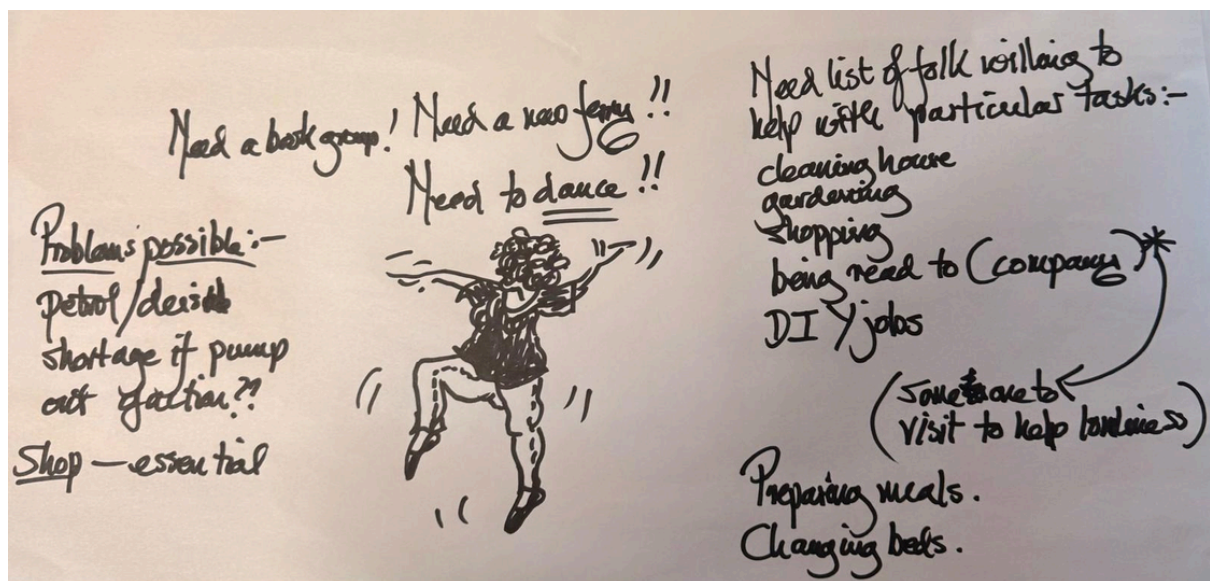 Need a book group!
Need a new ferry!!
Need to dance!!
Problems possible:-
petrol/deisel
shortage if pump
out of action??
Shop — essential
Need list of folk willing to
help with particular tasks:-
cleaning house
gardening
shopping
being read to (company)*
DIY jobs
(Someone to
visit to help loneliness)
Preparing meals.
Changing beds.